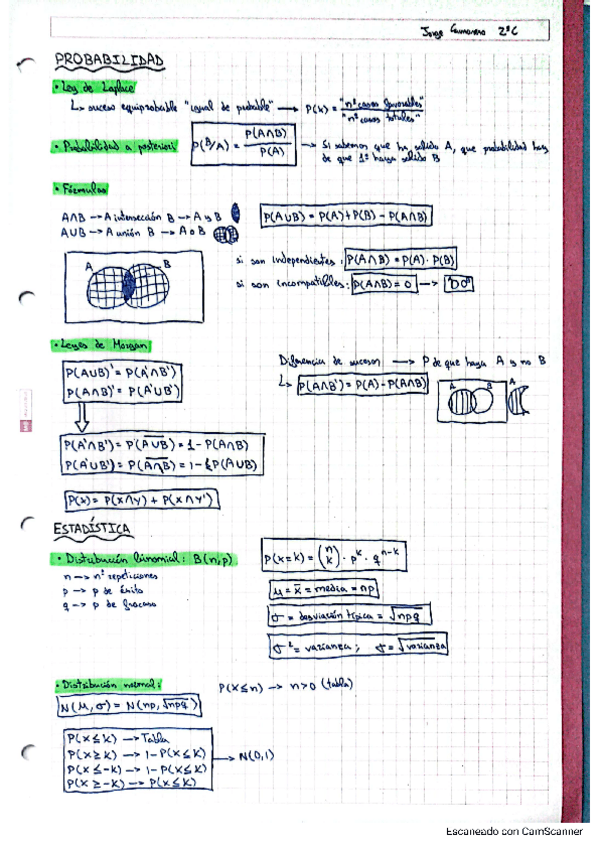 Jorge 2ºC
PROBABILIDAD
• Ley de Laplace
↳ suceso equiprobable "igual de probable" → P(x) = "nº casos favorables" / "nº casos totales"
• Probabilidad a posteriori P(B/A) = P(A∩B) / P(A) → Si sabemos que ha salido A, que probabilidad hay
de que 1º haya salido B
• Fórmulas
A∩B → A intersección B → A y B
P(A∪B) = P(A)+P(B) - P(A∩B)
A∪B → A unión B → A o B
A B
si son independientes: P(A∩B) = P(A) · P(B)
si son incompatibles: P(A∩B) = 0 →
• Leyes de Morgan
P(A∪B)' = P(A'∩B')
P(A∩B)' = P(A'∪B')
Diferencia de sucesos → P de que haya A y no B
↳ P(A∩B') = P(A) - P(A∩B)
A B A
P(A'∩B') = P(A∪B) = 1 - P(A∩B)
P(A'∪B') = P(A∩B) = 1 - P(A∪B)
P(x) = P(x∩y) + P(x∩y')
ESTADÍSTICA
• Distribución binomial: B(n,p)
n → nº repeticiones
p → p de éxito
q → p de fracaso
P(x=k) = (n k) · p^k · q^n-k
μ = x̄ = media = np
σ = desviación típica = √npq
σ² = varianza ; σ = √varianza
• Distribución normal:
P(x ≤ n) → n>0 (tabla)
N(μ, σ) = N(np, √npq)
P(x ≤ k) → Tabla
P(x ≥ k) → 1 - P(x ≤ k)
P(x ≤ -k) → 1 - P(x ≤ k)
P(x ≥ -k) → P(x ≤ k)
→ N(0,1)
Escaneado con CamScanner